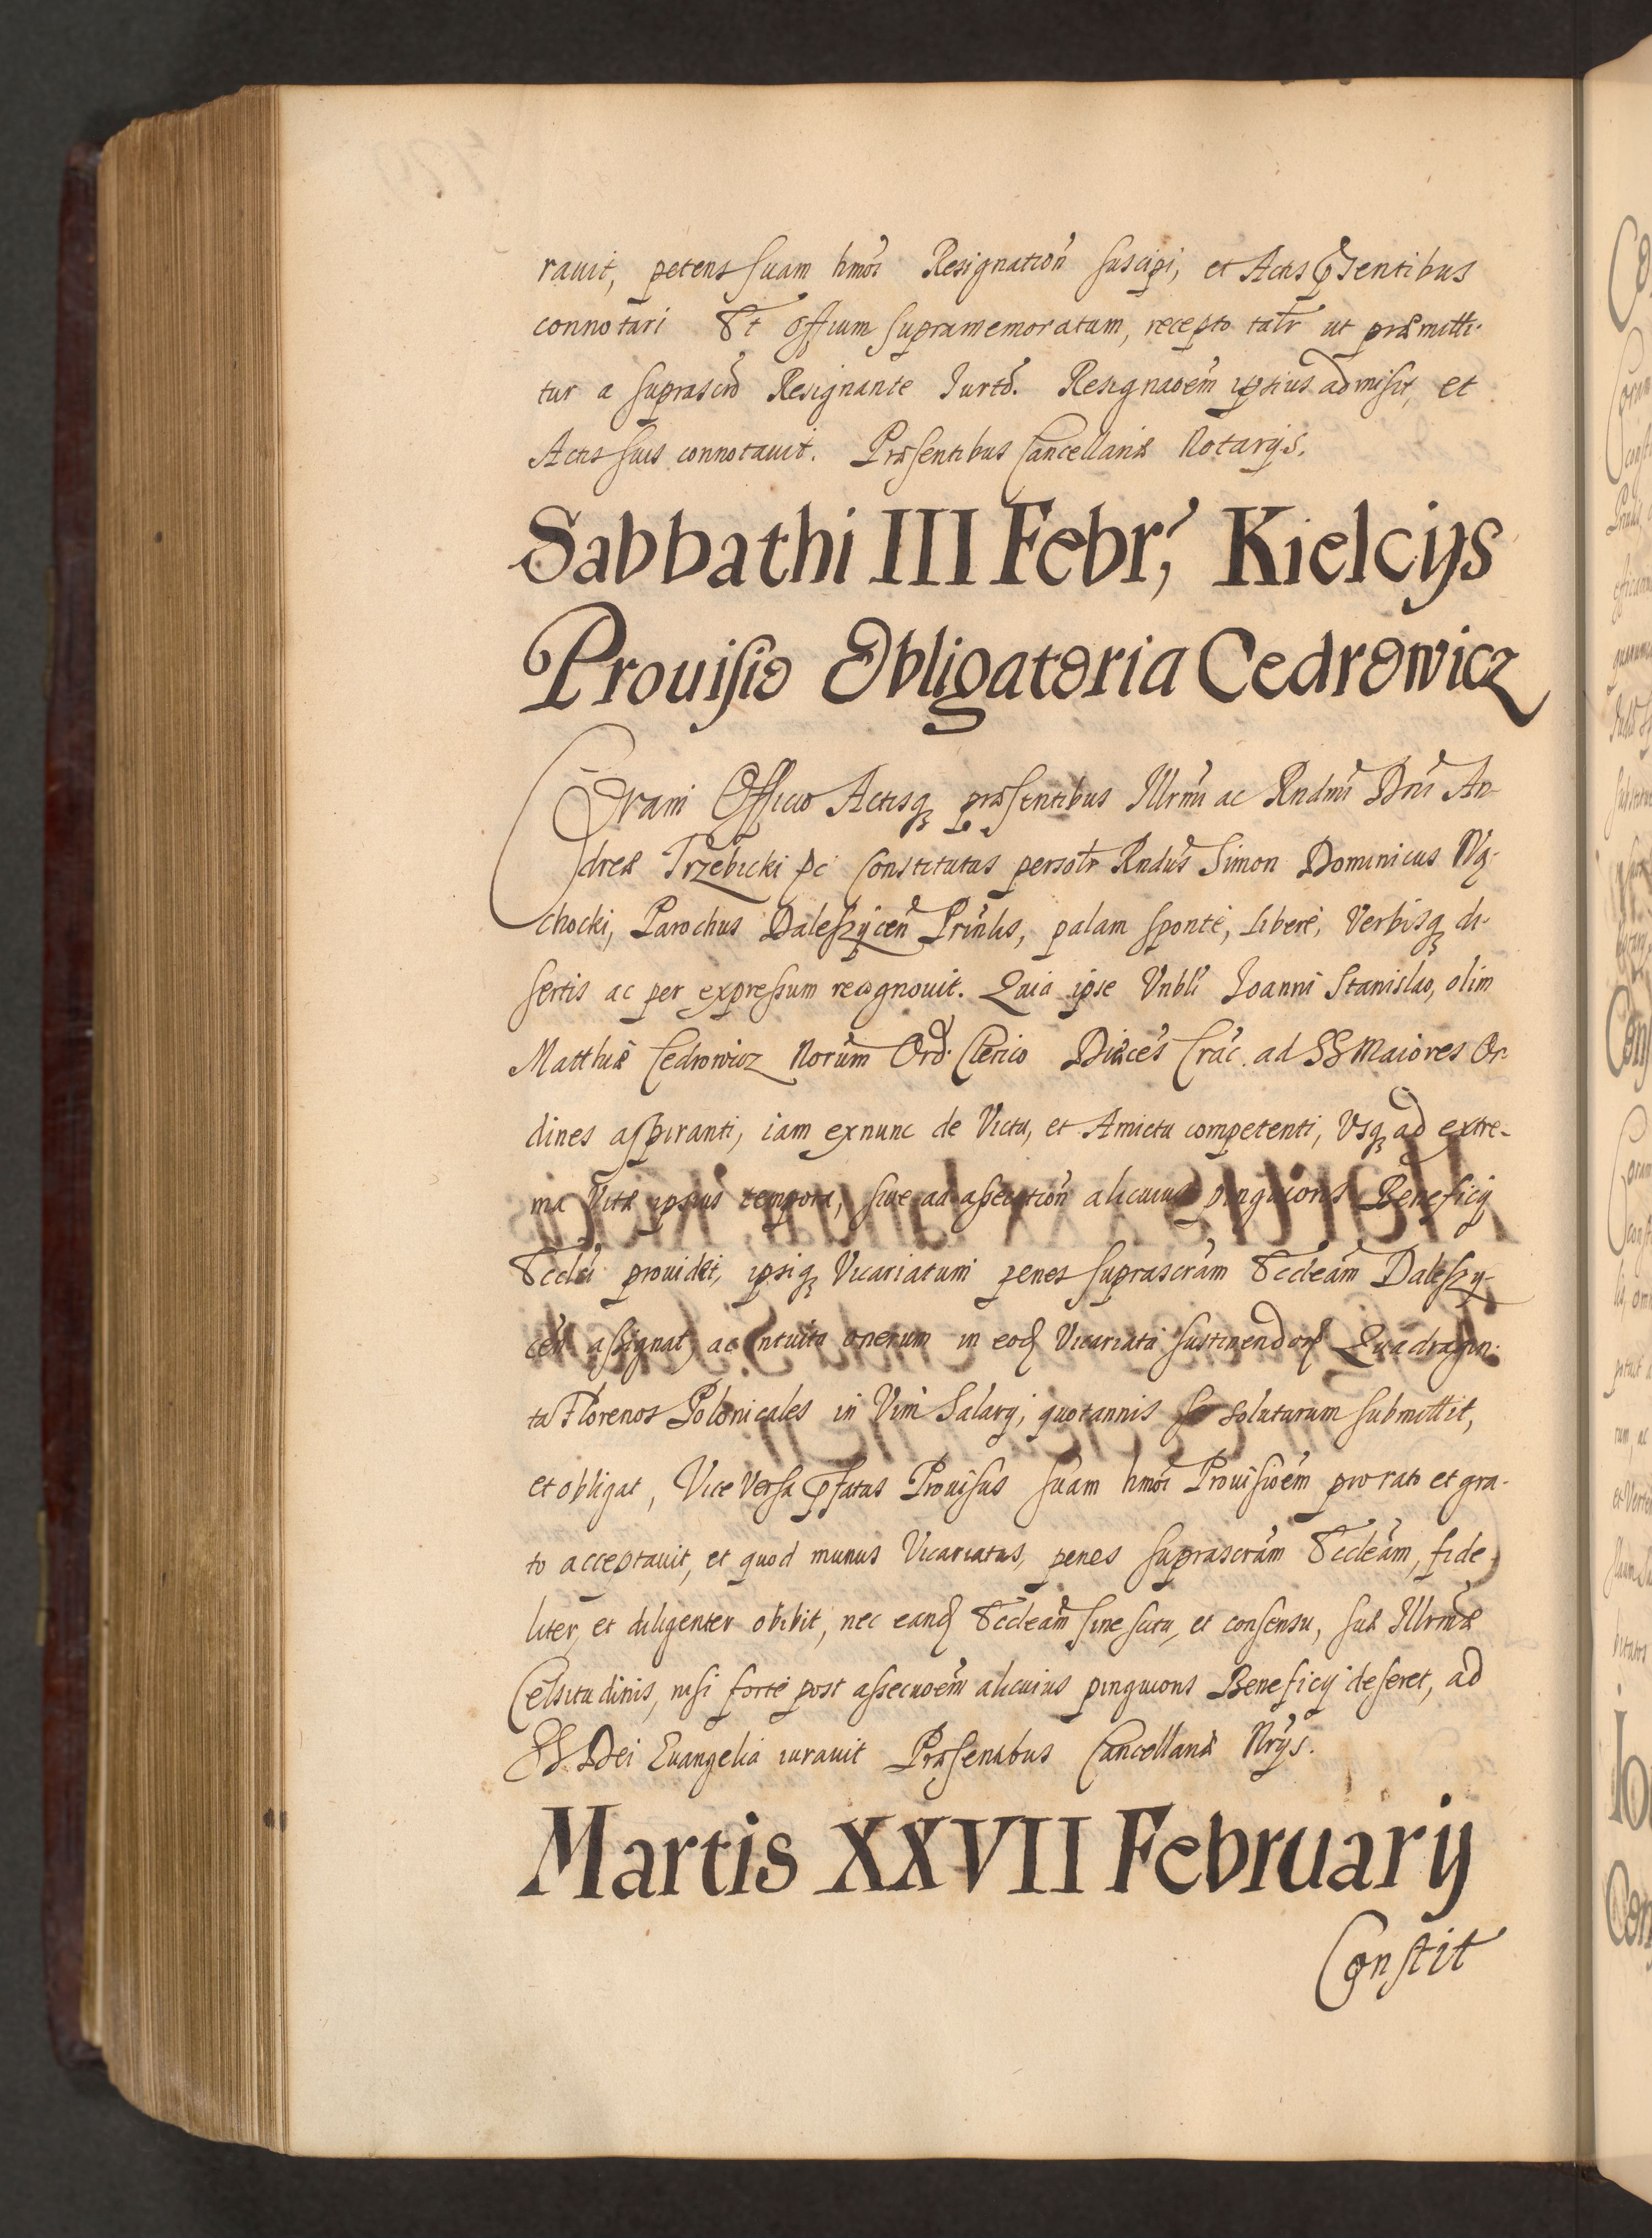 rauit, petens suam hmõi Resignationẽ suscipi, et Actis pñsentibus
connotari Et Offium supramemoratum, recepto talr ut præmitti-
tur a suprascrõ Resignante Jurtõ. Resignaõem ipsius admisit, et
Actis suis connotauit. Præsentibus Cancellariæ Notarijs.
Sabbathi III Febr, Kielcijs
Prouisio Obligatoria Cedrowicz
Coram Officio Actisq præsentibus Illrmi ac Rndmi Dni An-
dreæ Trzebicki pc Constitutus persolr Rndus Simon Dominicus Wą-
chocki, Parochus Daleszÿcen Prinlis, palam sponte, libere, Verbisq di-
sertis ac per expressum recognouit. Quia ipse Vnbli Joanni Stanislao, olim
Matthiæ Cedrowicz Norum Ord. Clerico Diæces Crac. ad SS Maiores Or-
dines aspiranti, iam exnunc de Victu, et Amictu competenti, Vsq ad extre-
ma Vitæ ipsius tempora, siue ad assecutionẽ alicuius pinguioris Beneficij
Eccleci prouidet, ipsiq Vicariatum penes suprascram Eccleam Daleszy-
cen assignat, ac intuitu onerum in eod Vicariatu sustinendor Quadragin-
ta Florenos Polonicales in Vim Salarij, quotannis se soluturum submittit,
et obligat, Vice Versa pfatus Prouisus suam hmõi Prouisioem pro rato et gra-
to acceptauit, et quod munus Vicariatus, penes suprascram Eccleam, fide-
liter, et diligenter obibit, nec eand Eccleam sine scitu, et consensu, suæ Illrmæ
Celsitudinis, nisi forte post assecuoem alicuius pinguioris Beneficij deseret, ad
SS. Dei Euangelia iurauit Præsentibus Cancellariæ Nrijs.
Martis XXVII Februarij
Constit